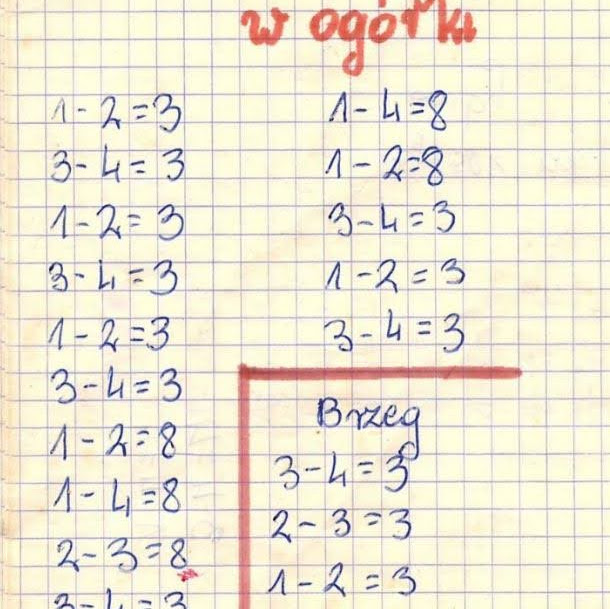 w ogórki
1-2=3
3-4=3
1-2=3
3-4=3
1-2=3
3-4=3
1-2=8
1-4=8
2-3=8
3-4=3
1-4=8
1-2=8
3-4=3
1-2=3
3-4=3
Brzeg
3-4=3
2-3=3
1-2=3